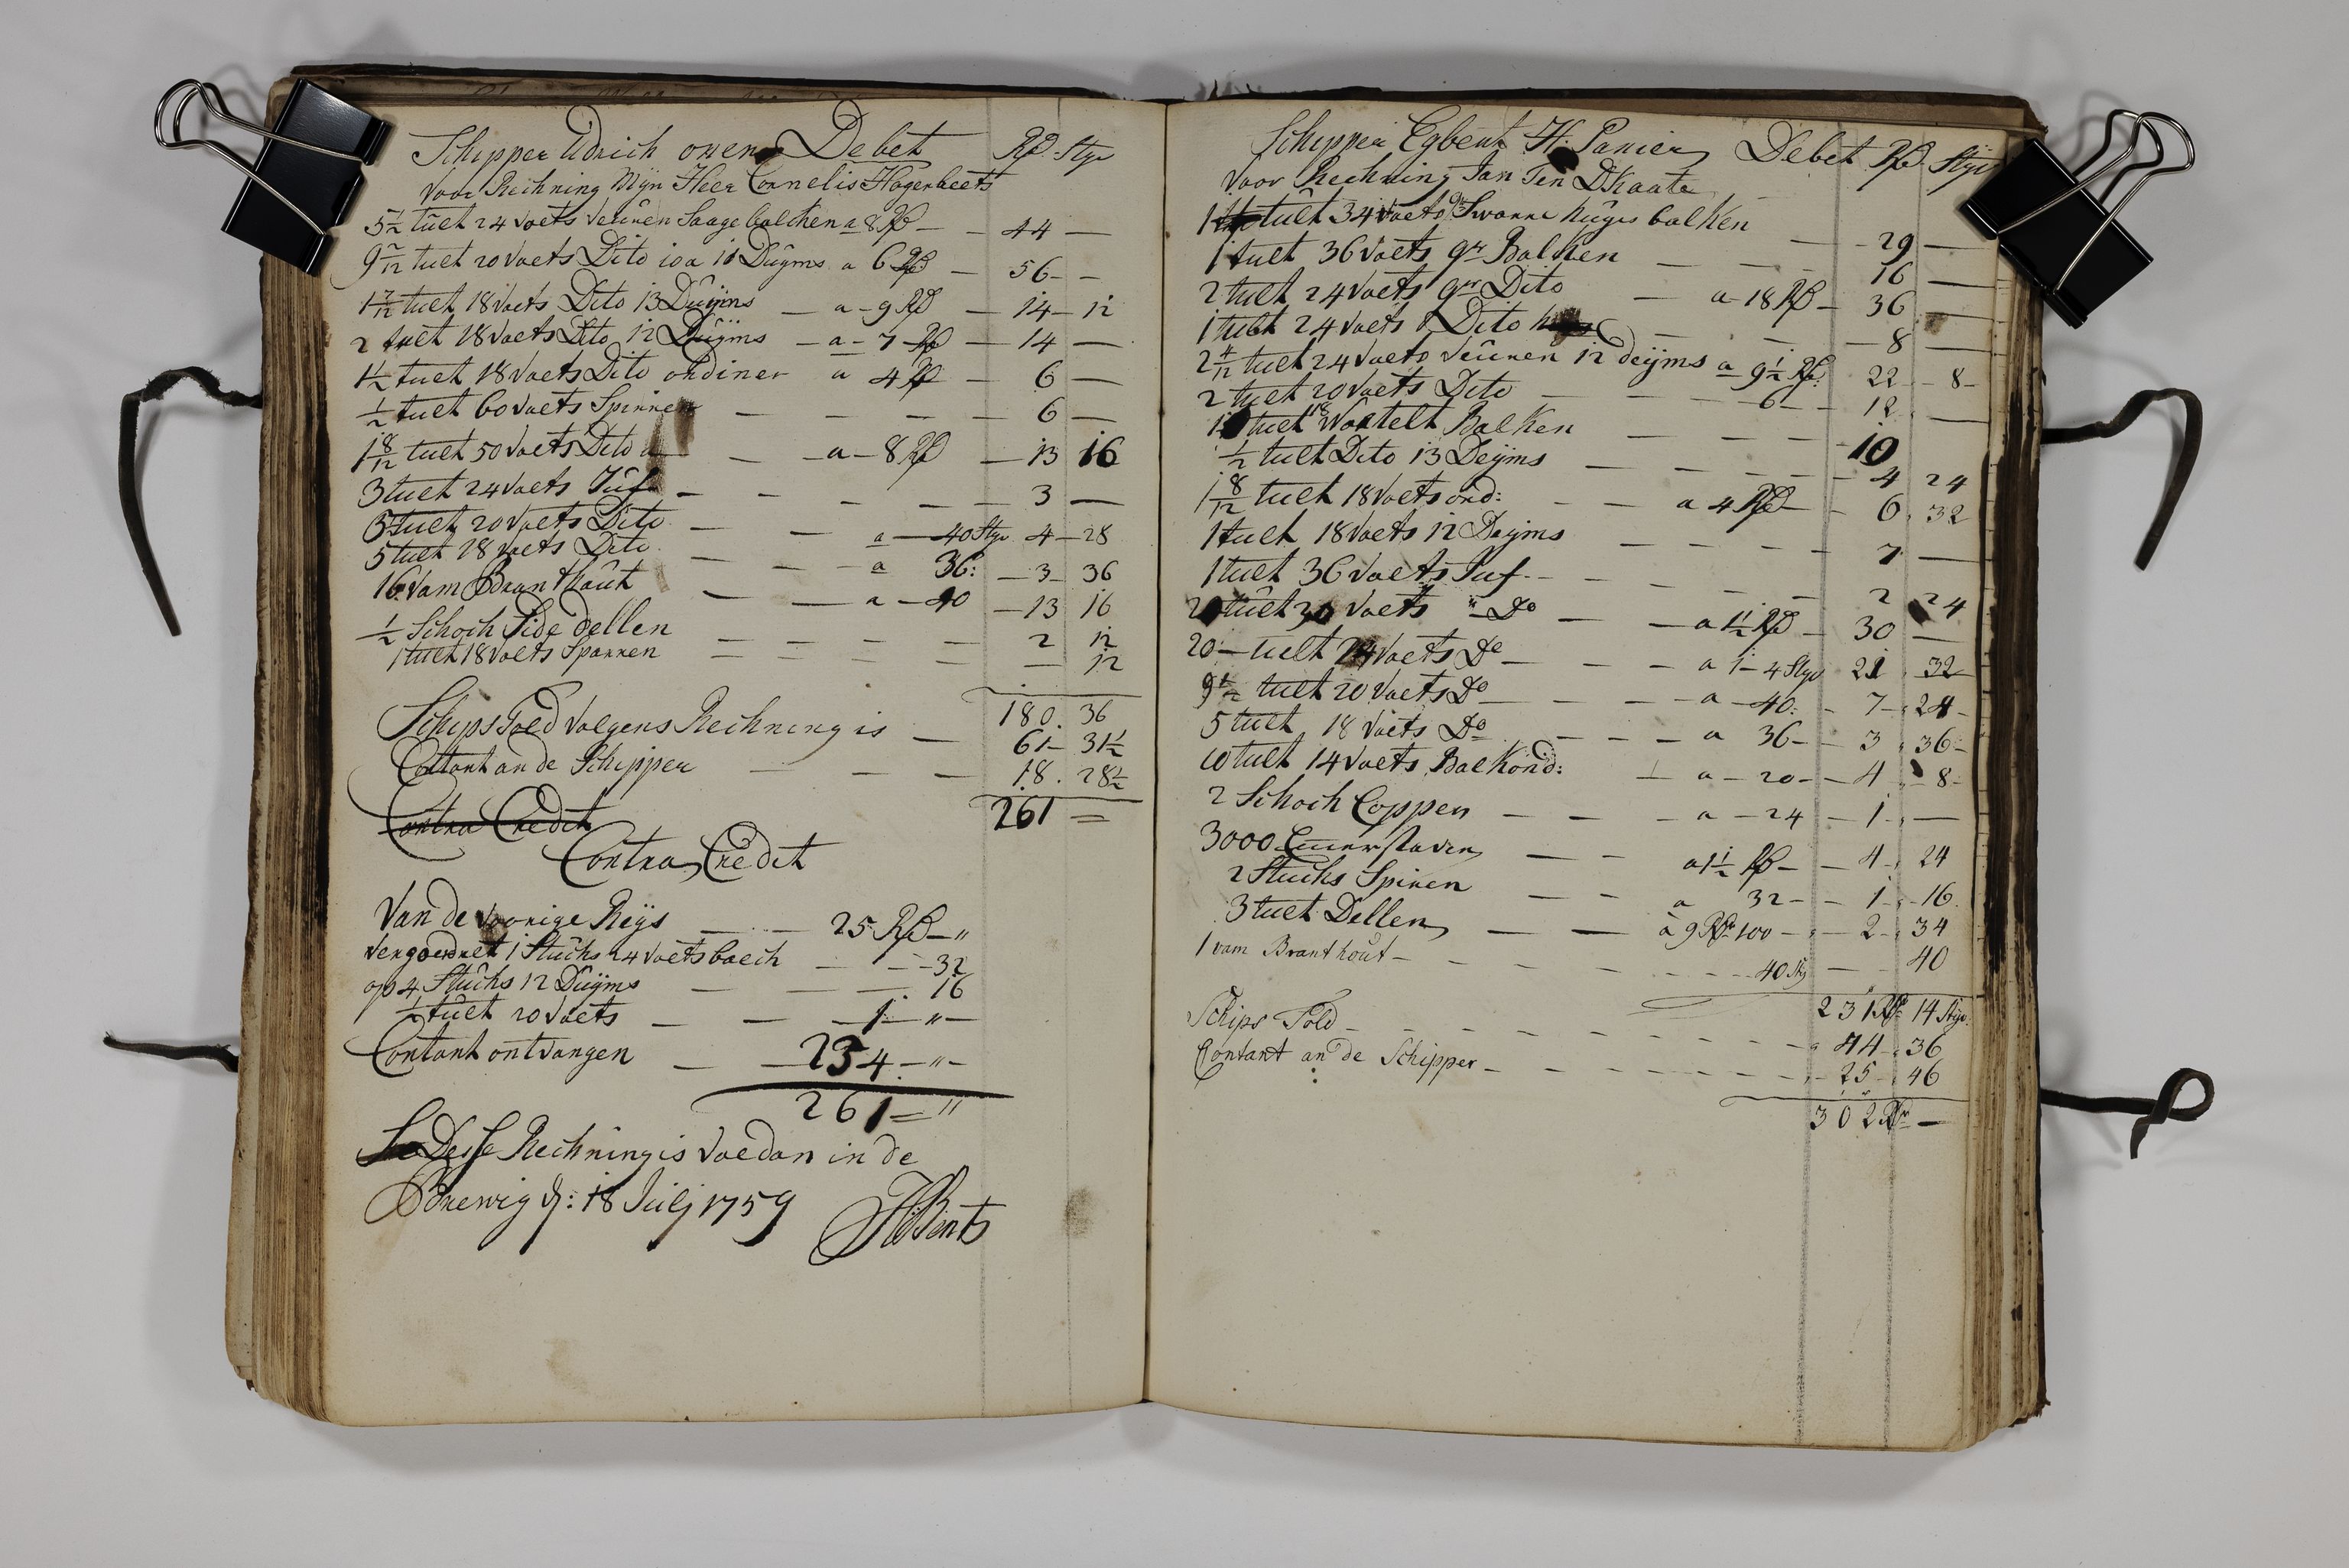 Schipper Udrich owen Debet Rd. Styr
Voor Rechning Mijn Heer Cornelis Hagenbeets
5 1/2 tuet 24 voets veuren Saage balcken a 8 Rd — 44 —
9 7/12 tuet 20 Voets Dito 10 a 11 Duijms a 6 Rd — 56 - -
1 7/12 tuet 18 Voets Dito 13 Duijms — a - 9 Rd — 14 - 12
2 tuet 18 Voets Dito 12 Duijms — a - 7 Rd — 14 —
1 1/2 tuet 18 Voets Dito ordiner a 4 Rd — 6 —
1/2 tuet 60 Voets Spirren — — — — 6 —
1 8/12 tuet 50 Voets Dito — a - 8 Rd — 13 16
3 tuet 24 Voets Juf — — — — — 3 —
5 tuet 20 Voets Dito — — a — 40 Styr 4 - 28
5 tuet 18 Voets Dito — — a 36: — 3 - 36
16 Vam Brant hout — — a - 40 — 13 16
1/2 Schoch Side dellen — — — — — 2 12
1 tuet 18 Voets Sparren — — — — — 12
180. 36
Schips Toed Volgens Rechning is — 61 - 31 1/2
Contant an de Schipper — — — 18. 28 1/2
261 =
Contra Credit
Contra Credit
Van de Voorige Reijs — — 25 Rd - "
1 Stuchs 24 Voets baech — - - 32
op 4 Stuchs 12 Duijms — — — 16
1/2 tuet 20 Voets — — — 1 - " -
Contant ontvangen — — 234 - " -
261 = "
Desse Rechning is Voedan in de
Drewig d: 18 Julij 1759 HBents
Schipper Egbent H. Panier Debet Rd. Styr
Voor Rechning Jan Ten DKaate
1 tuet 34 Voets gr Swanne huges balken — 29 —
1 tuet 36 Voets gr Balken — — — 16 —
2 tuet 24 Voets gr Dito — a - 18 Rd — 36
1 tuet 24 Voets Dito — — — 8 —
2 4/12 tuet 24 Voets veuren 12 deijms a 9 1/2 Rd: 22 - 8 -
2 tuet 20 Voets Dito — — — 6 — 12 —
1 tuet 18 Voetelt Balken — — — — 10
1/2 tuet Dito 13 Deijms — — — — — 4 24
1 8/12 tuet 18 Voets ord: — — a 4 Rd — 6 32
1 tuet 18 Voets 12 Deijms — — — — 7 —
1 tuet 36 Voets Juf. — — — — 2 24
20 tuet 30 Voets " Do — — a 1 1/2 Rd — 30 —
20 — tuet 24 Voets Do — — — a 1 - 4 Styr 21 32
9 1/2 tuet 20 Voets Do — — — a - 40: - 7 - 24 -
5 tuet 18 Voets Do — — — a 36 - - 3 36 -
10 tuet 14 Voets Balk ond: — a - 20 - - 4 - 8 -
2 Schoch Coppen — — — a - 24 - 1 - —
3000 Emerstaven — — a 1 1/2 Rd - - 4 - 24
2 Stuchs Spiren — — a 32 - - 1 - 16
3 tuet Dellen — — a 9 Rd 100 — - 2 - 34
1 vam Brant hout - - - - 40 Stij — 40
231 Rdr 14 Styr.
Schips Told - - - - - 44 - 36
Contant an de Schipper - - - - - 25 - 46
302 Rdr —